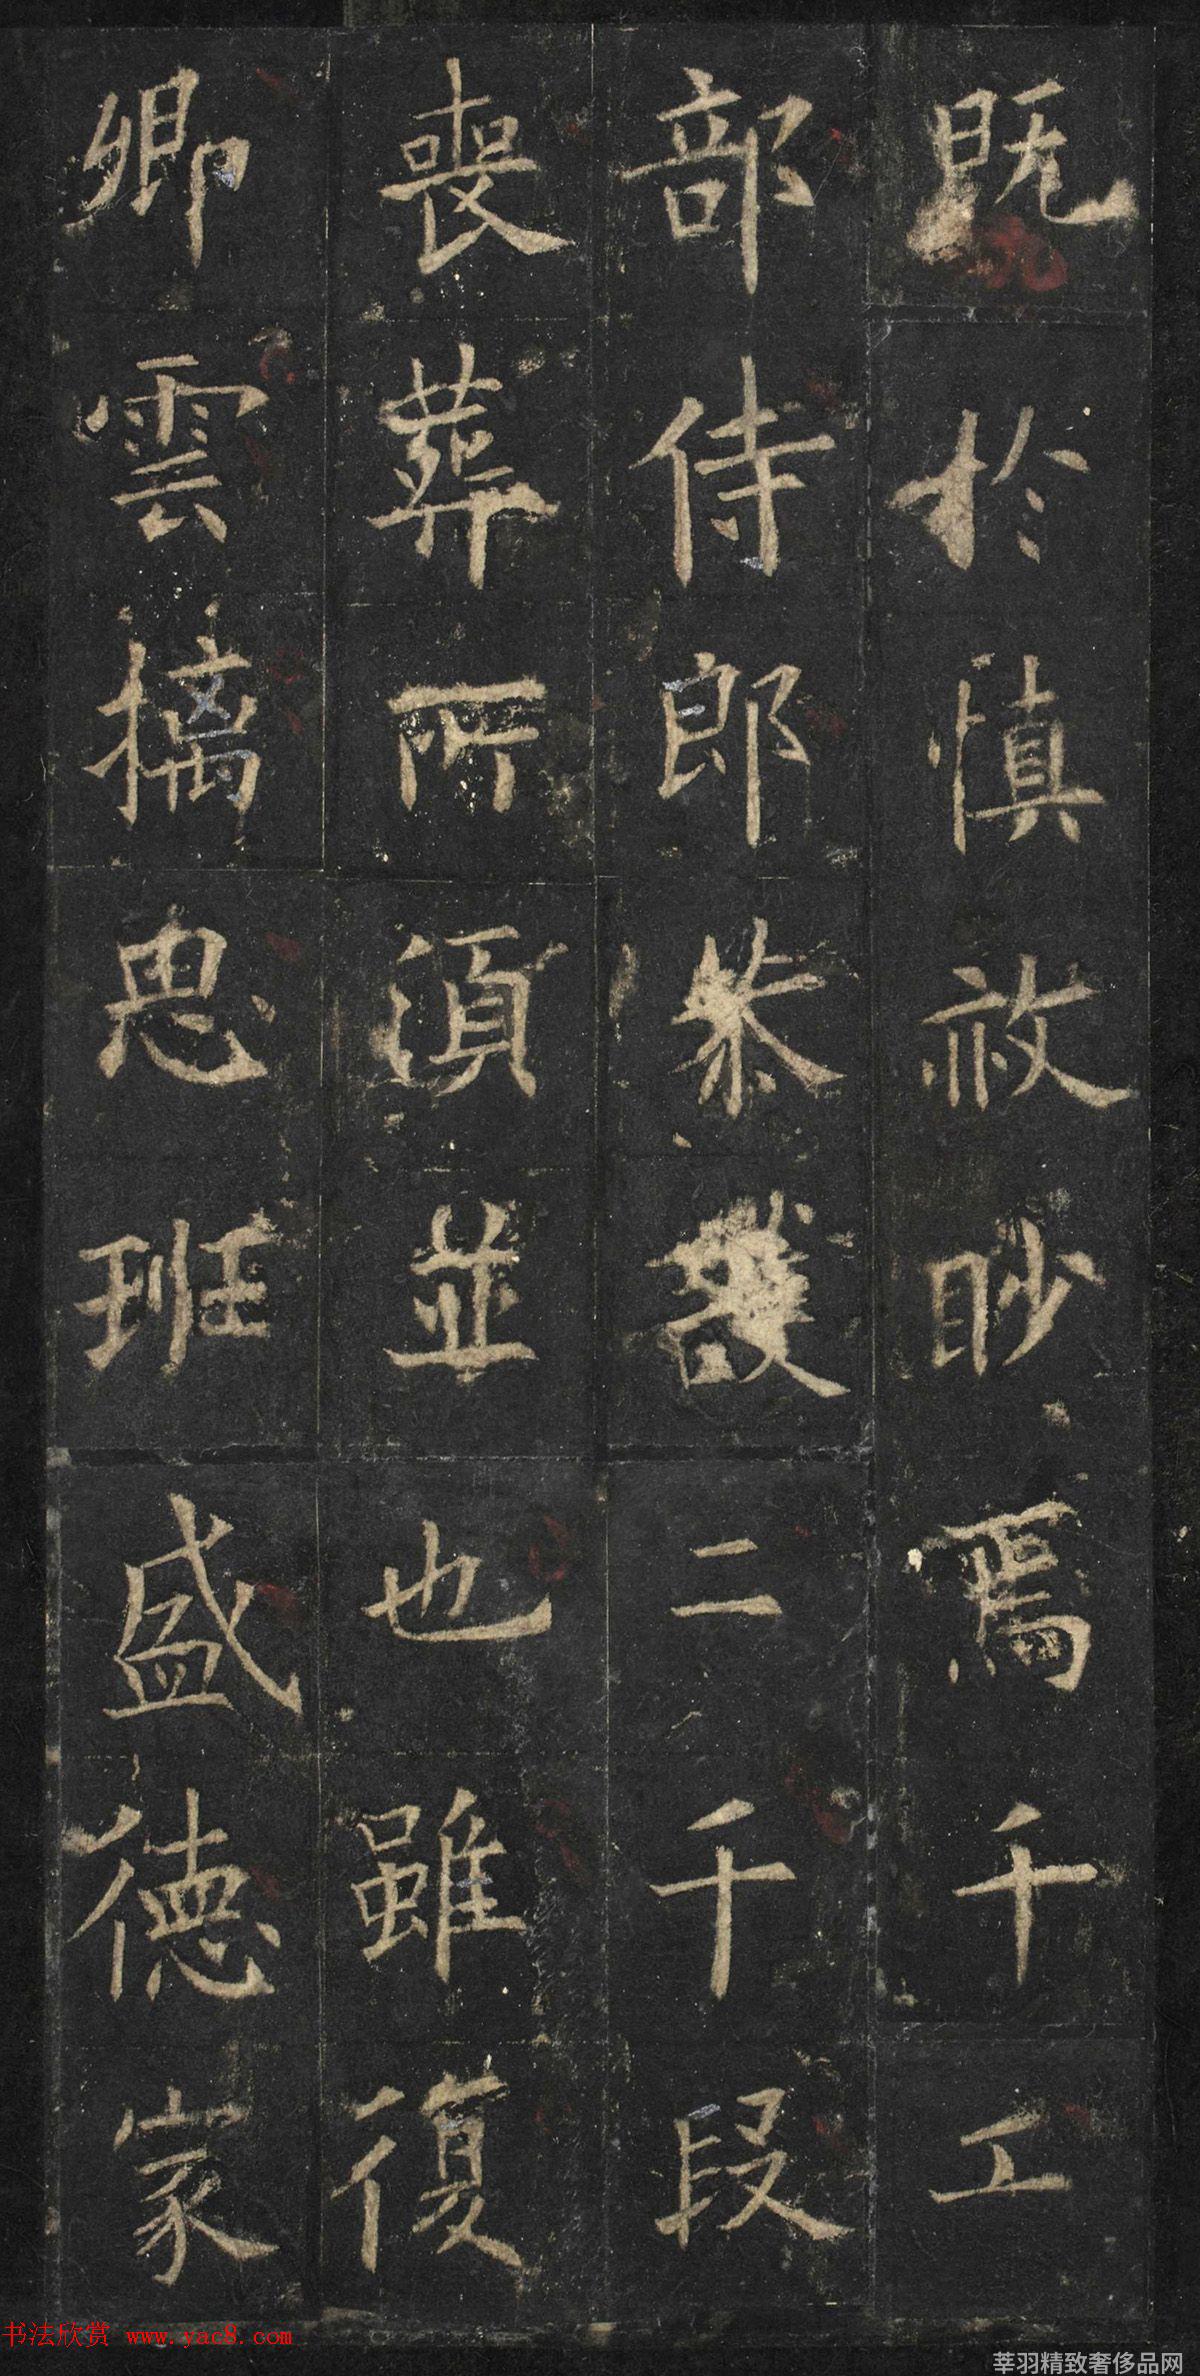 既於慎眇焉千工
部侍郎恭護二千段
喪葬所須並也雖復
卿雲摛思班盛德家
书法欣赏 www.yac8.com
莘羽精致奢侈品网